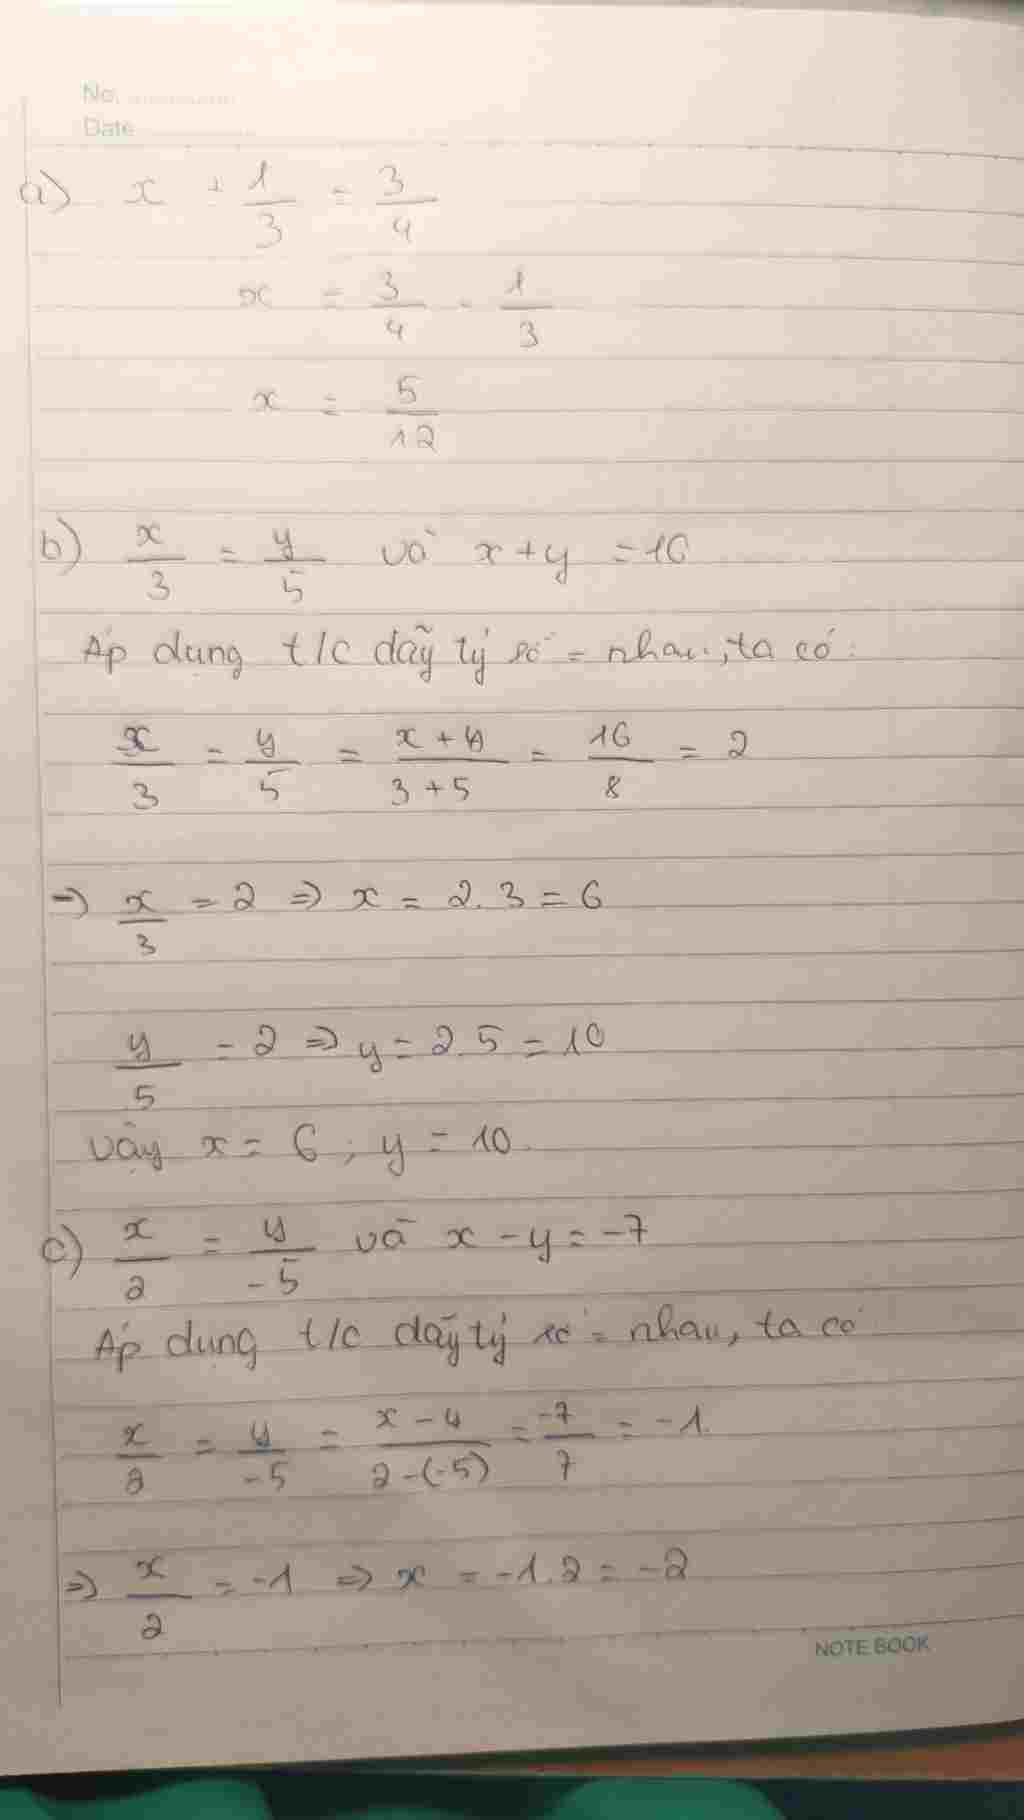 No. ............
Date ............
a) x + 1/3 = 3/4
x = 3/4 - 1/3
x = 5/12
b) x/3 = y/5 và x+y = 16
Áp dụng t/c dãy tỷ số = nhau, ta có:
x/3 = y/5 = x+y/3+5 = 16/8 = 2
=> x/3 = 2 => x = 2.3 = 6
y/5 = 2 => y = 2.5 = 10
Vậy x = 6 ; y = 10.
c) x/2 = y/-5 và x - y = -7
Áp dụng t/c dãy tỷ số = nhau, ta có
x/2 = y/-5 = x-y/2-(-5) = -7/7 = -1.
=> x/2 = -1 => x = -1.2 = -2
NOTE BOOK